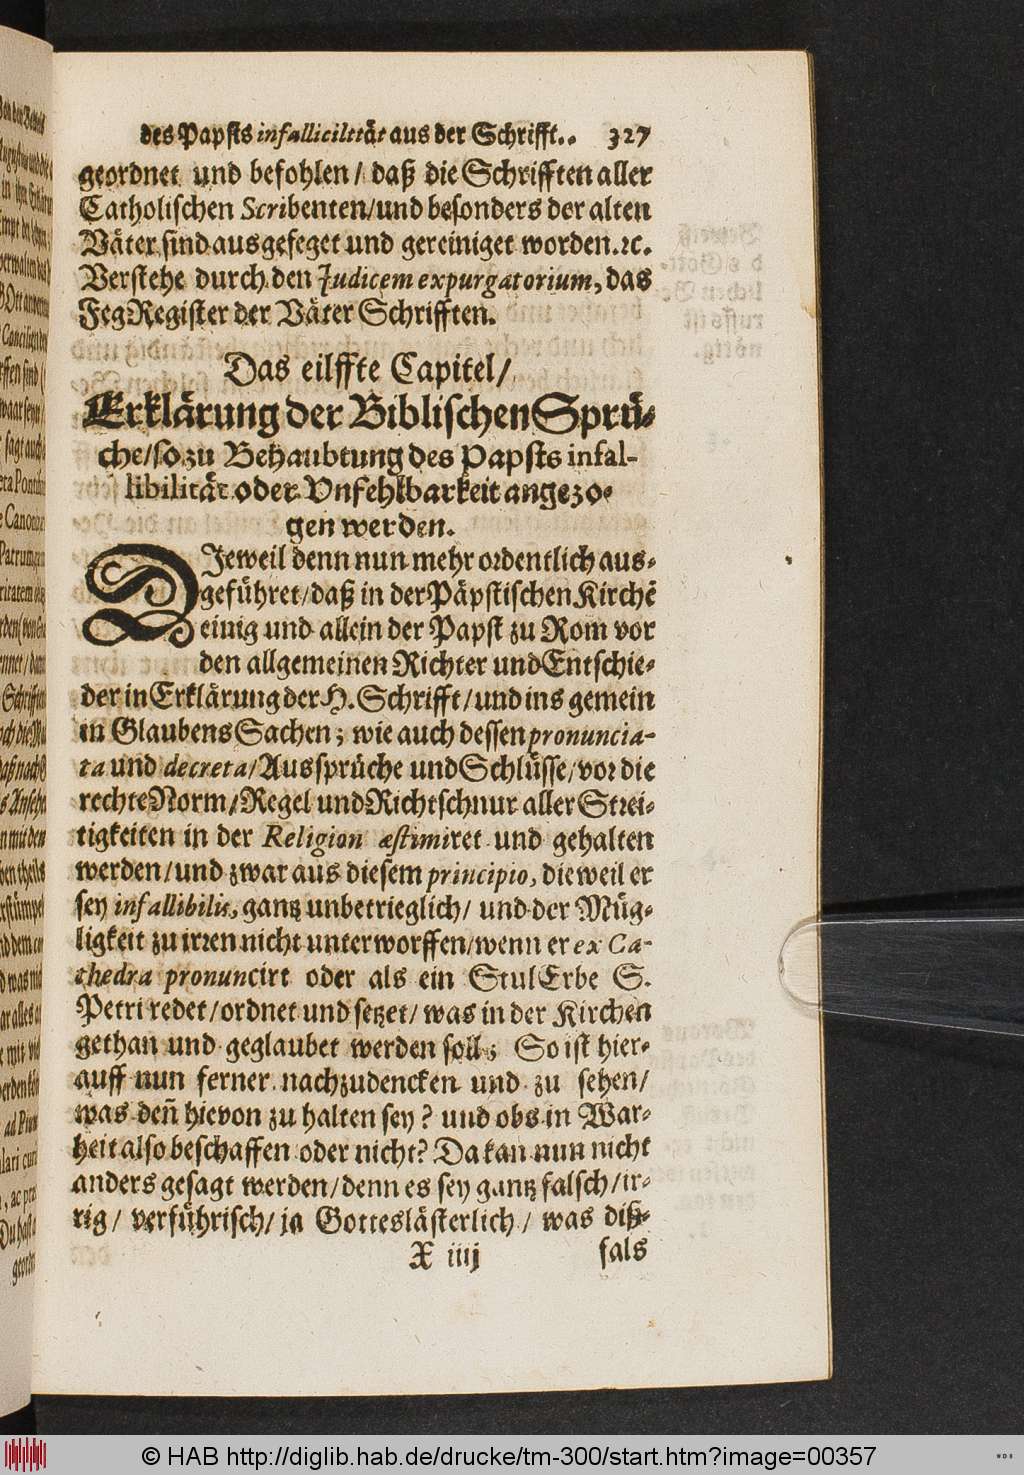 des Papsts infallicilität aus der Schrifft.. 327
geordnet und befohlen / daß die Schrifften aller
Catholischen Scribenten/und besonders der alten
Väter sind ausgefeget und gereiniget worden.ꝛc.
Verstehe durch den Judicem expurgatorium, das
FegRegister der Väter Schrifften.
Das eilffte Capitel/
Erklärung der Biblischen Sprü-
che/so zu Behaubtung des Papsts infal-
libilität oder Unfehlbarkeit angezo-
gen werden.
DJeweil denn nun mehr ordentlich aus-
geführet/daß in der Päpstischen Kirchẽ
einig und allein der Papst zu Rom vor
den allgemeinen Richter und Entschie-
der in Erklärung der H. Schrifft/und ins gemein
in Glaubens Sachen; wie auch dessen pronuncia-
ta und decreta/Aussprüche und Schlüsse/vor die
rechte Norm/Regel und Richtschnur aller Strei-
tigkeiten in der Religion æstimiret und gehalten
werden/und zwar aus diesem principio, dieweil er
sey infallibilis, gantz unbetrieglich/ und der Müg-
ligkeit zu irren nicht unterworffen/wenn er ex Ca-
thedra pronuncirt oder als ein StulErbe S.
Petri redet/ordnet und setzet/ was in der Kirchen
gethan und geglaubet werden soll; So ist hier-
auff nun ferner nachzudencken und zu sehen/
was deñ hievon zu halten sey? und obs in War-
heit also beschaffen oder nicht? Da kan nun nicht
anders gesagt werden/denn es sey gantz falsch/ir-
rig/ verführisch/ ja Gotteslästerlich/ was diß-
X iiij fals
© HAB http://diglib.hab.de/drucke/tm-300/start.htm?image=00357